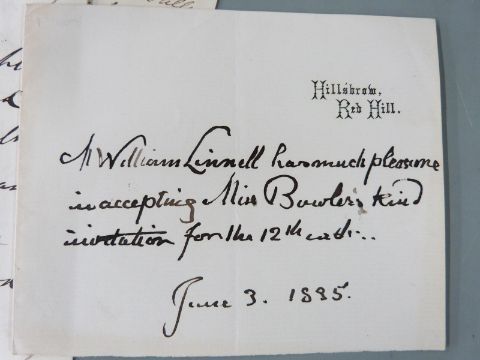 Hillsbrow,
Red Hill.
Mr William Linnell has much pleasure
in accepting Miss Bowler's kind
invitation for the 12th
June 3. 1885.